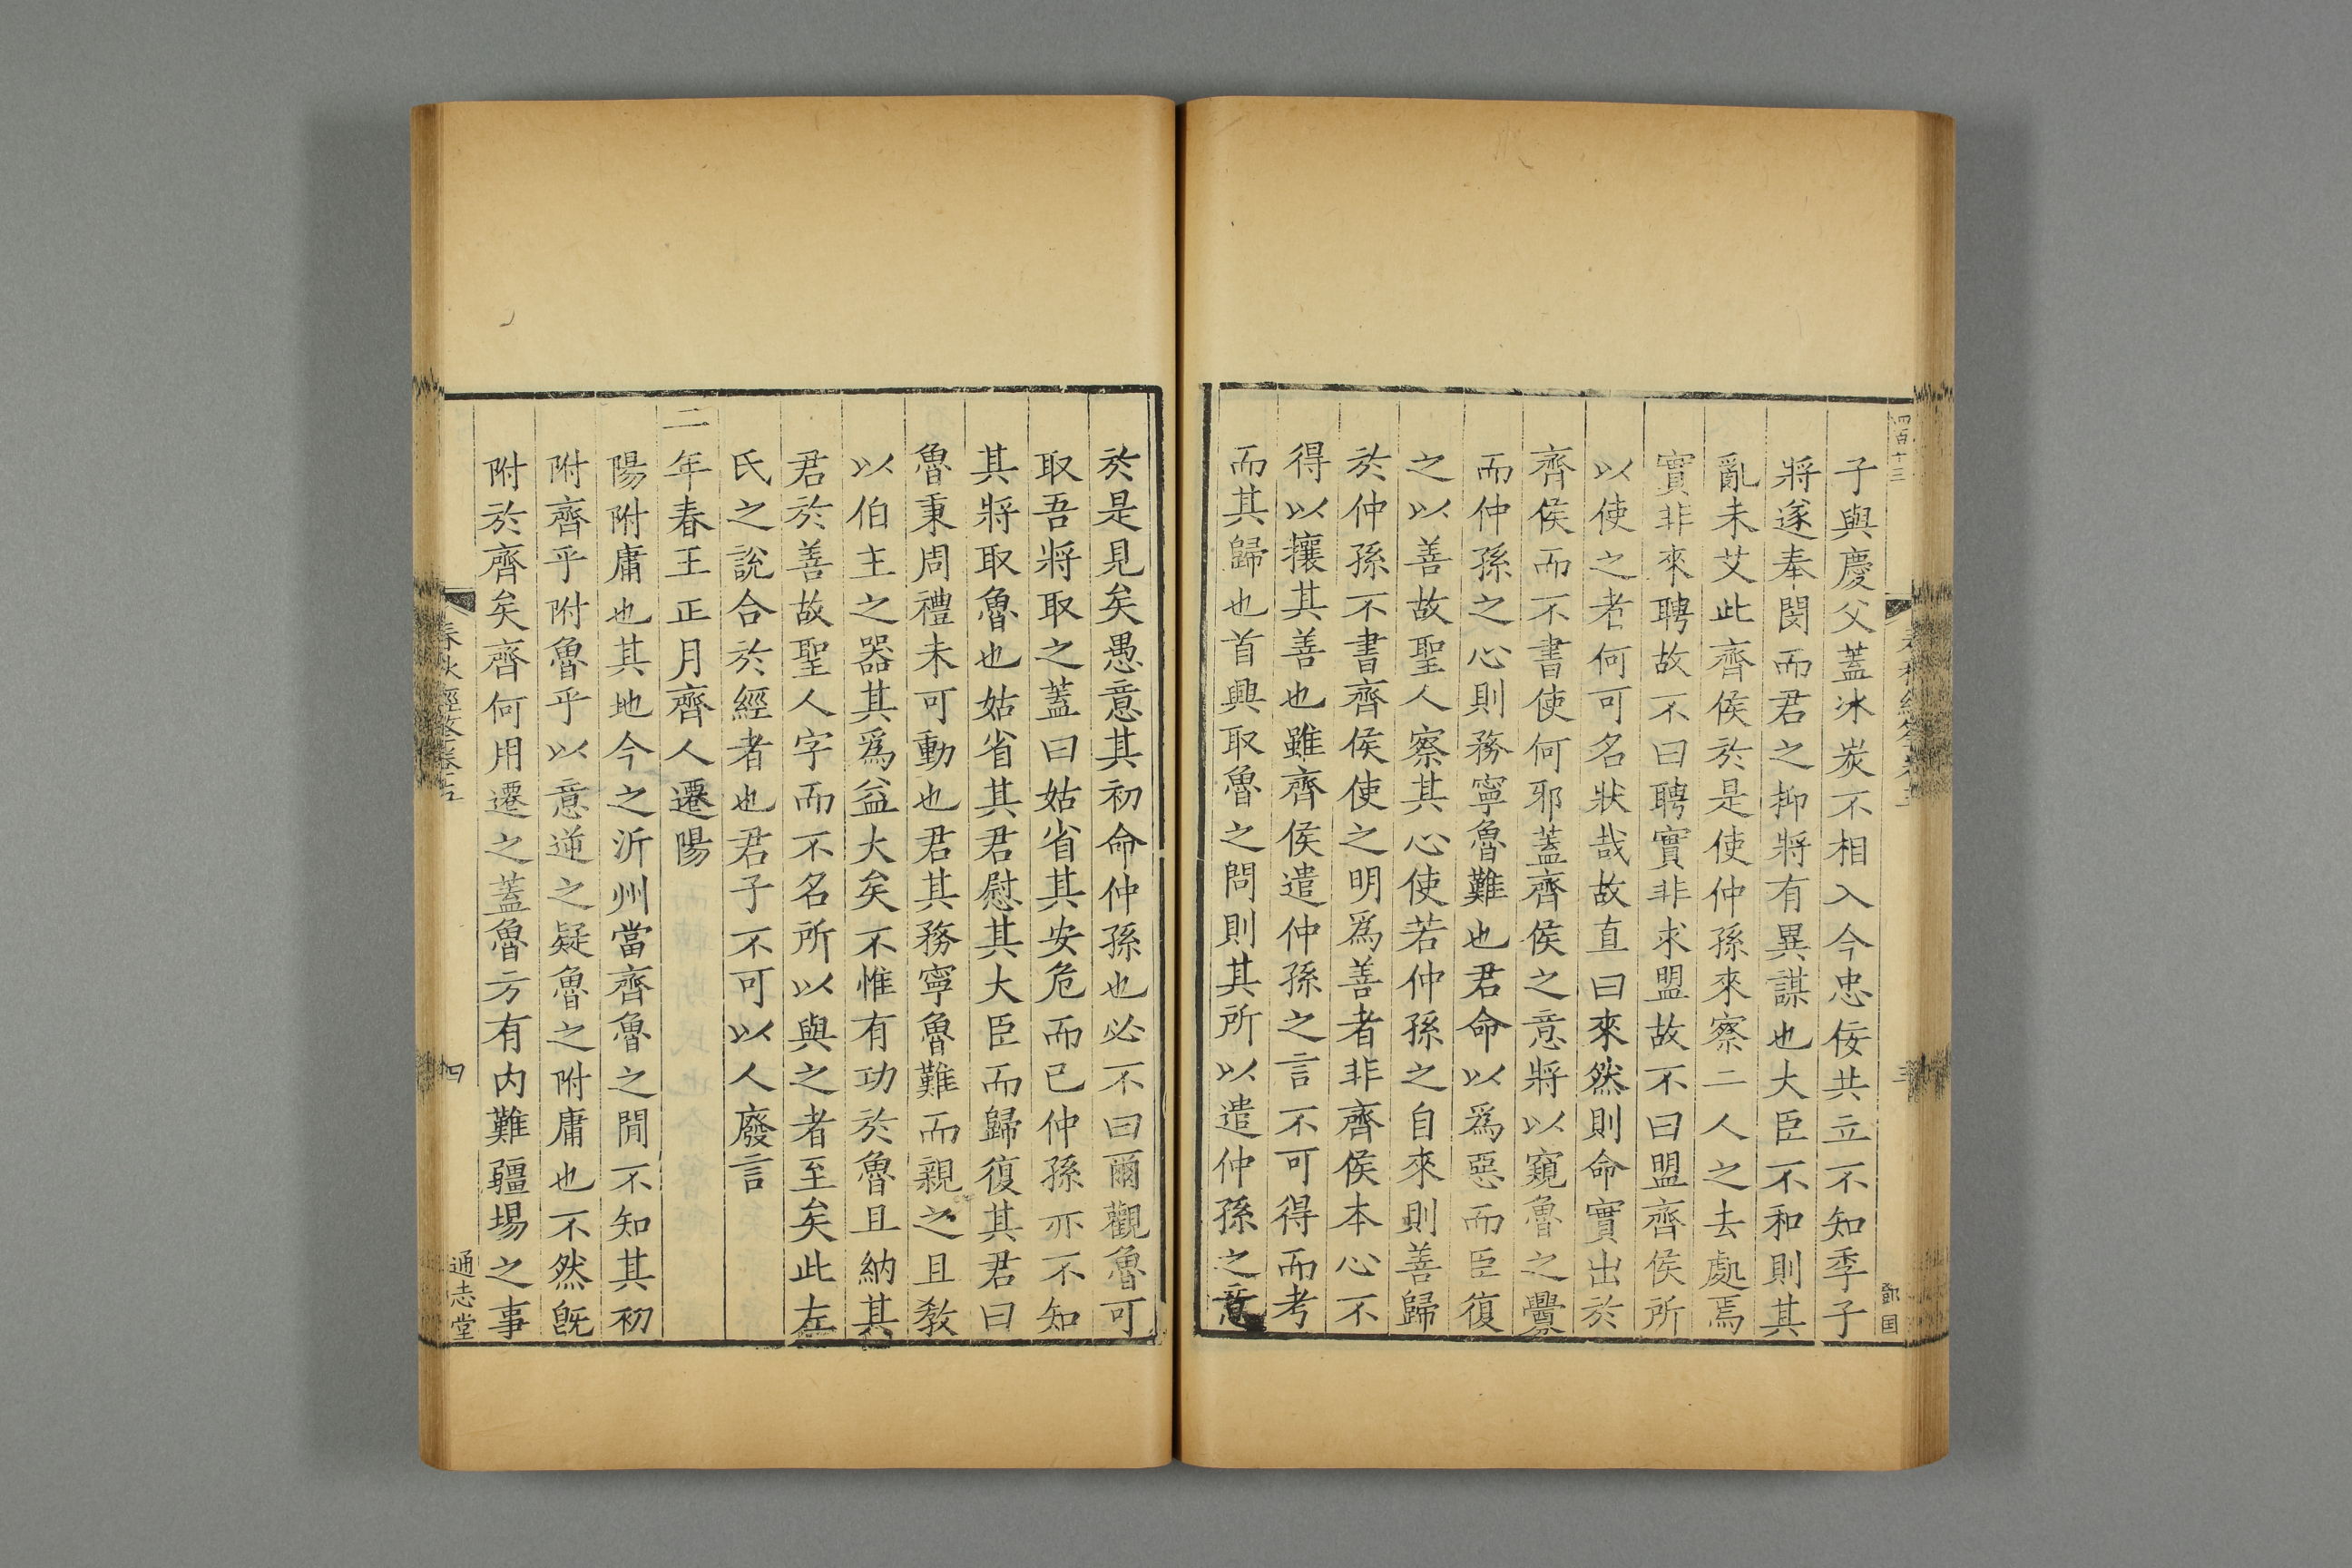 四百十三
子與慶父蓋冰炭不相入今忠佞共立不知季子
將遂奉閔而君之抑將有異謀也大臣不和則其
亂未艾此齊侯於是使仲孫來察二人之去處焉
實非來聘故不曰聘實非求盟故不曰盟齊侯所
以使之者何可名狀哉故直曰來然則命實出於
齊侯而不書使何邪蓋齊侯之意將以窺魯之釁
而仲孫之心則務寧魯難也君命以爲惡而臣復
之以善故聖人察其心使若仲孫之自來則善歸
於仲孫不書齊侯使之明爲善者非齊侯本心不
得以攘其善也雖齊侯遣仲孫之言不可得而考
而其歸也首興取魯之問則其所以遣仲孫之意
於是見矣愚意其初命仲孫也必不曰爾觀魯可
取吾將取之蓋曰姑省其安危而已仲孫亦不知
其將取魯也姑省其君慰其大臣而歸復其君曰
魯秉周禮未可動也君其務寧魯難而親之且敎
以伯主之器其爲益大矣不惟有功於魯且納其
君於善故聖人字而不名所以與之者至矣此左
氏之說合於經者也君子不可以人廢言
二年春王正月齊人遷陽
陽附庸也其地今之沂州當齊魯之閒不知其初
附齊乎附魯乎以意逆之疑魯之附庸也不然旣
附於齊矣齊何用遷之蓋魯方有内難疆場之事
春秋經筌卷五
四
通志堂